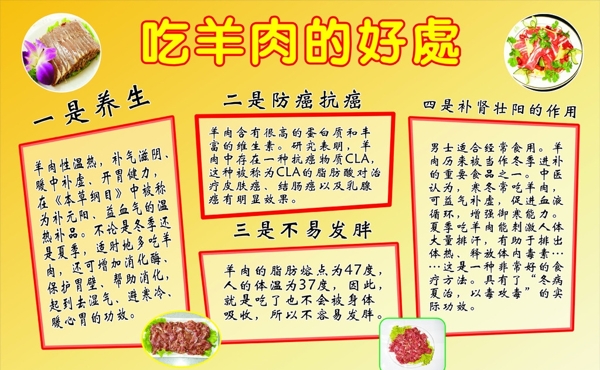 吃羊肉的好處
一是养生
羊肉性温热,补气滋阴、
暖中补虚、开胃健力,
在《本草纲目》中被称
为补元阳、益血气的温
热补品。不论是冬季还
是夏季,适时地多吃羊
肉,还可增加消化酶、
保护胃壁、帮助消化,
起到去湿气、避寒冷、
暖心胃的功效。
二是防癌抗癌
羊肉含有很高的蛋白质和丰
富的维生素。研究表明,羊
肉中存在一种抗癌物质CLA,
这种被称为CLA的脂肪酸对治
疗皮肤癌、结肠癌以及乳腺
癌有明显效果。
三是不易发胖
羊肉的脂肪熔点为47度,
人的体温为37度,因此,
就是吃了也不会被身体
吸收,所以不容易发胖。
四是补肾壮阳的作用
男士适合经常食用。羊
肉历来被当作冬季进补
的重要食品之一。中医
认为,来冬常吃羊肉,
可益气补虚,促进血液
循环,增强御来能力。
夏季吃羊肉能刺激人体
大量排汗,有助于排出
体热、释放体内毒素…
…这是一种非常好的食
疗方法。具有了“冬病
夏治,以毒攻毒”的实
际功效。